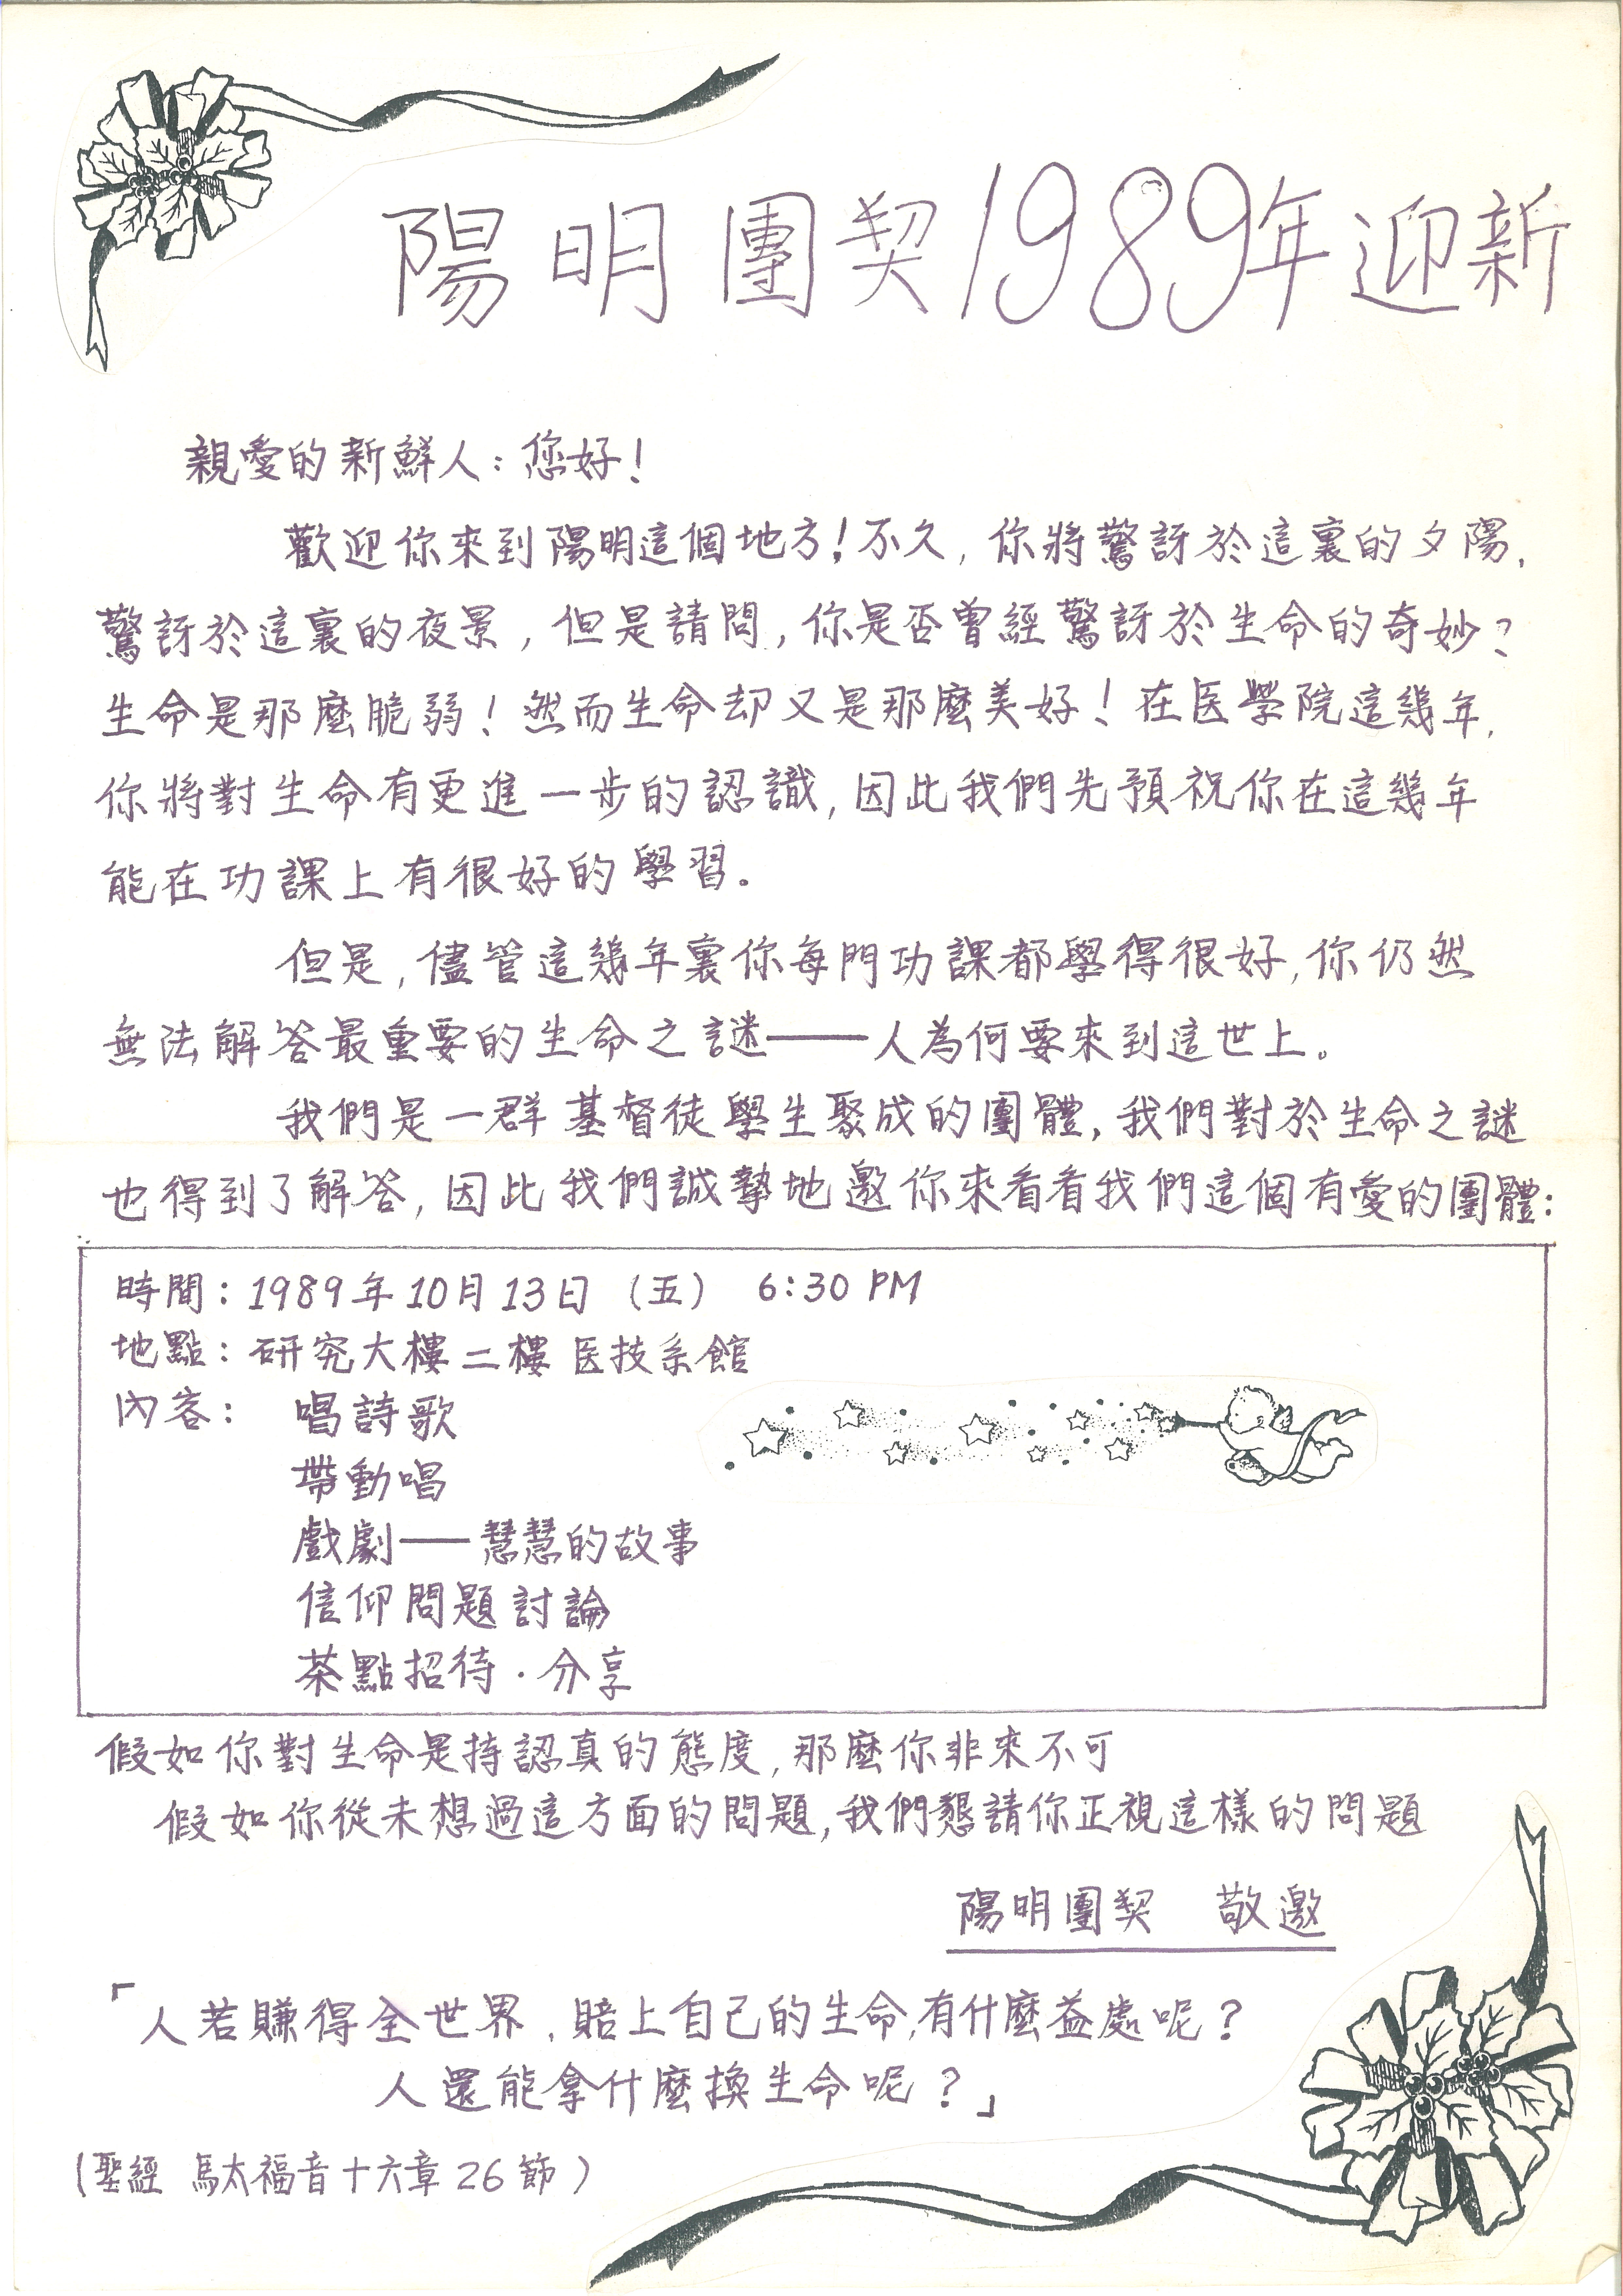 陽明團契1989年迎新
親愛的新鮮人：您好！
歡迎你來到陽明這個地方！不久，你將驚訝於這裏的夕陽，
驚訝於這裏的夜景，但是請問，你是否曾經驚訝於生命的奇妙？
生命是那麼脆弱！然而生命却又是那麼美好！在医學院這幾年，
你將對生命有更進一步的認識，因此我們先預祝你在這幾年
能在功課上有很好的學習。
但是，儘管這幾年裏你每門功課都學得很好，你仍然
無法解答最重要的生命之謎——人為何要來到這世上。
我們是一群基督徒學生聚成的團體，我們對於生命之謎
也得到了解答，因此我們誠摯地邀你來看看我們這個有愛的團體：
時間：1989年10月13日（五） 6:30 PM
地點：研究大樓二樓医技系館
內容： 唱詩歌
帶動唱
戲劇——慧慧的故事
信仰問題討論
茶點招待．分享
假如你對生命是持認真的態度，那麼你非來不可
假如你從未想過這方面的問題，我們懇請你正視這樣的問題
陽明團契 敬邀
「人若賺得全世界，賠上自己的生命，有什麼益處呢？
人還能拿什麼換生命呢？」
（聖經 馬太福音十六章26節）